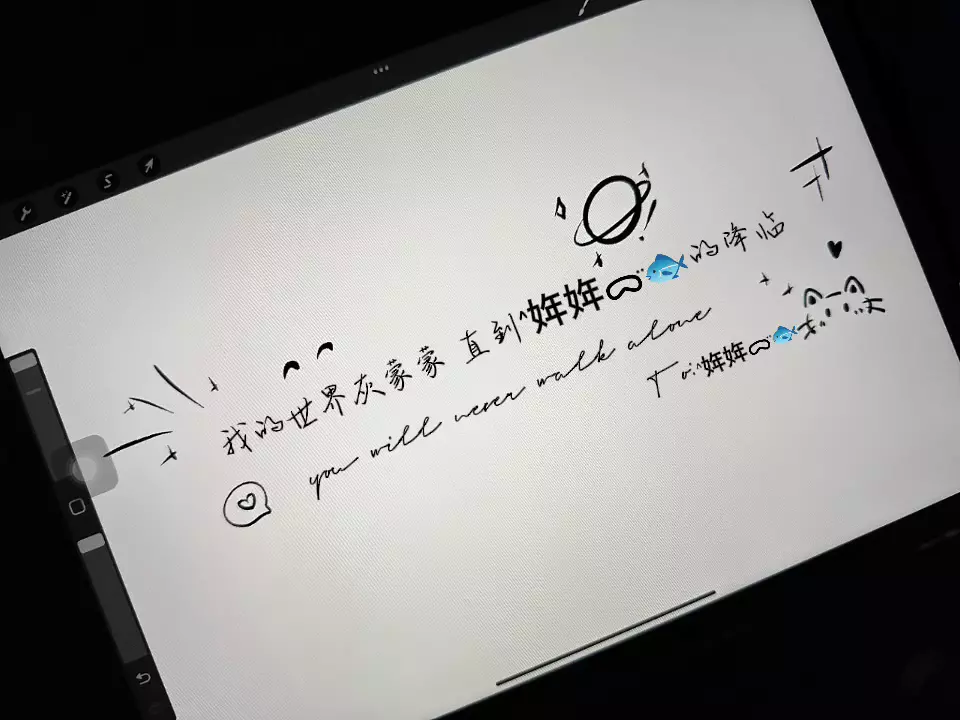 我的世界灰蒙蒙 直到"姩姩ᯅ̈🐟的降临
you will never walk alone
To:"姩姩ᯅ̈🐟